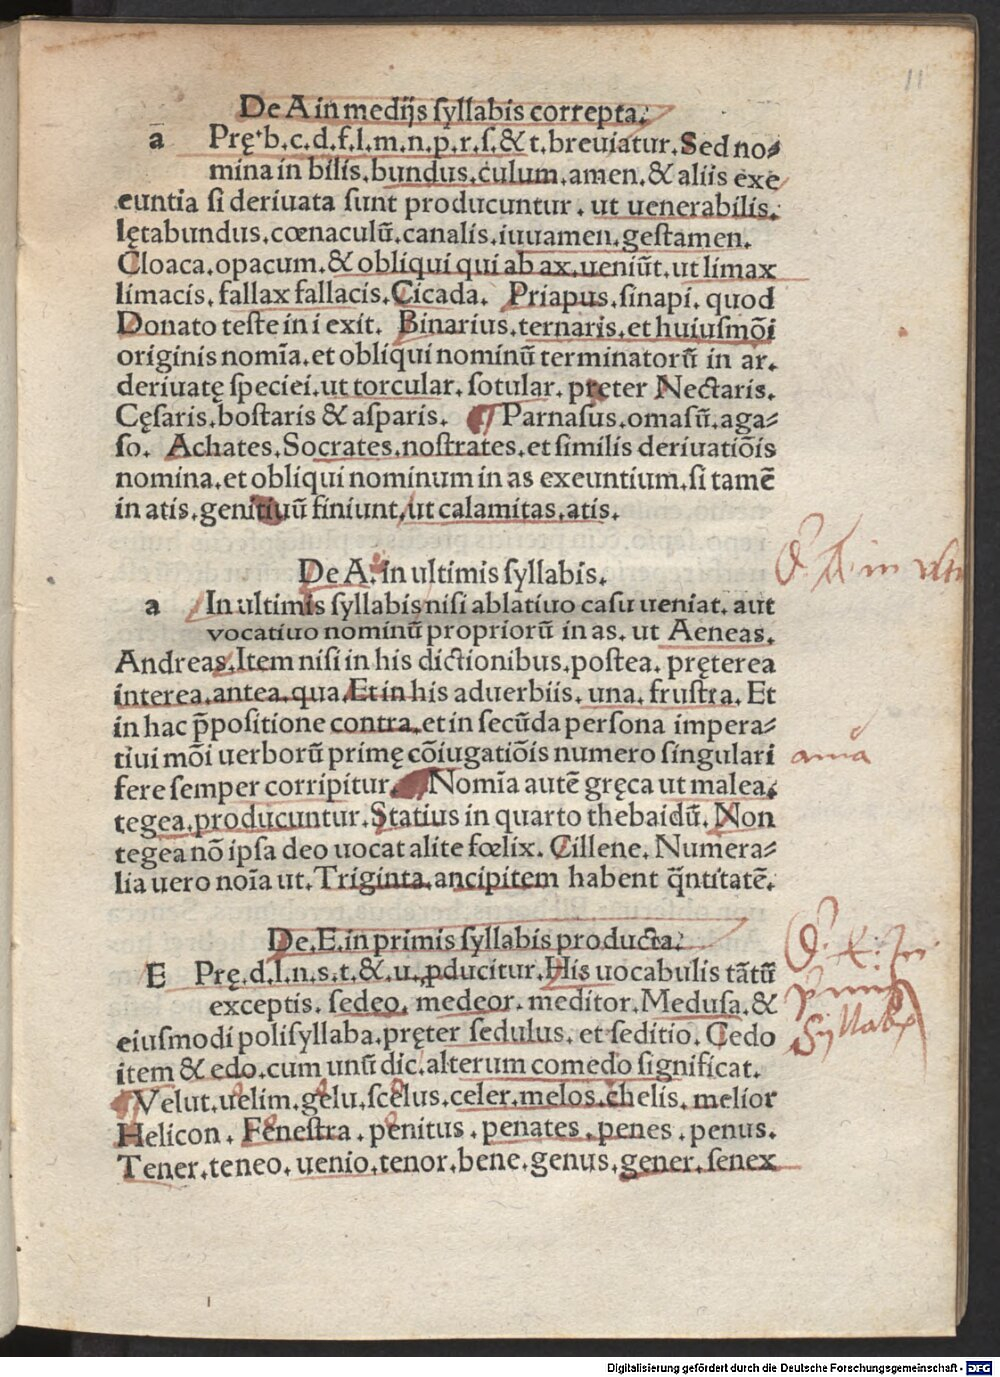 11
De A in medijs syllabis correpta.
a Pre b.c.d.f.l.m.n.p.r.s.& t. breuiatur. Sed no⸗
mina in bilis. bundus. culum. amen. & aliis exe
euntia si deriuata sunt producuntur. ut uenerabilis.
lętabundus. cœnaculū. canalis. iuuamen. gestamen.
Cloaca. opacum. & obliqui qui ab ax. ueniūt. ut limax
limacis. fallax fallacis. Cicada. Priapus. sinapi. quod
Donato teste in i exit. Binarius. ternaris. et huiusmōi
originis nomīa. et obliqui nominū terminatorū in ar.
deriuatę speciei. ut torcular. sotular. preter Nectaris.
Cęsaris. bostaris & asparis. Parnasus. omasū. aga⸗
so. Achates. Socrates. nostrates. et similis deriuatiōis
nomina. et obliqui nominum in as exeuntium. si tamē
in atis. genitiuū finiunt. ut calamitas. atis.
De A. in ultimis syllabis.
a In ultimis syllabis nisi ablatiuo casu ueniat. aut
vocatiuo nominū propriorū in as. ut Aeneas.
Andreas. Item nisi in his dictionibus. postea. pręterea
interea. antea. qua. Et in his aduerbiis. una. frustra. Et
in hac p̄positione contra. et in secūda persona impera⸗
tiui mōi uerborū primę cōiugatiōis numero singulari
ama
fere semper corripitur. Nomīa autē gręca ut malea.
tegea. producuntur. Statius in quarto thebaidū. Non
tegea nō ipsa deo uocat alite fœlix. Cillene. Numera⸗
lia uero noīa ut. Triginta. ancipitem habent q̄ntitatē.
De. E. in primis syllabis producta.
E Pre. d. l. n. s. t. & u. ꝓducitur. His uocabulis tātū
exceptis. sedeo. medeor. meditor. Medusa. &
eiusmodi polisyllaba. pręter sedulus. et seditio. Cedo
syllabis
item & edo. cum unū dic. alterum comedo significat.
Velut. uelim. gelu. scelus. celer. melos. chelis. melior
Helicon. Fenestra. penitus. penates. penes. penus.
Tener. teneo. uenio. tenor. bene. genus. gener. senex
Digitalisierung gefördert durch die Deutsche Forschungsgemeinschaft - DFG